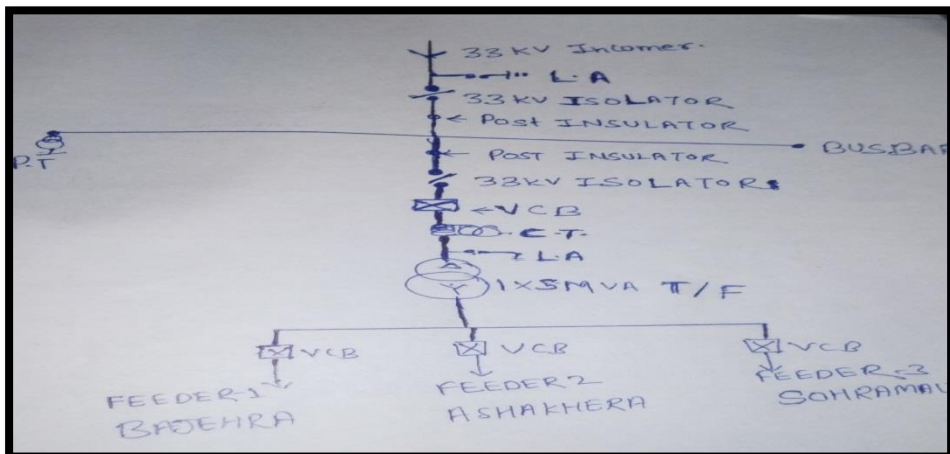 33 KV Incomer.
L.A
33 KV ISOLATOR
Post INSULATOR
BUSBAR
P.T
Post INSULATOR
33KV ISOLATOR
VCB
C.T.
L.A
Δ
Y
1X5MVA T/F
VCB
VCB
VCB
FEEDER-1
BAJEHRA
FEEDER 2
ASHAKHERA
FEEDER-3
SOHRAMAU